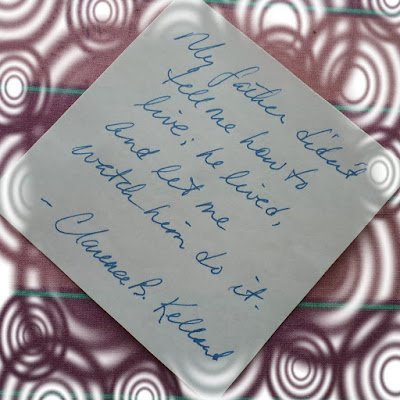 My father didn't
tell me how to
live; he lived,
and let me
watch him do it.
- Clarence B. Kelland